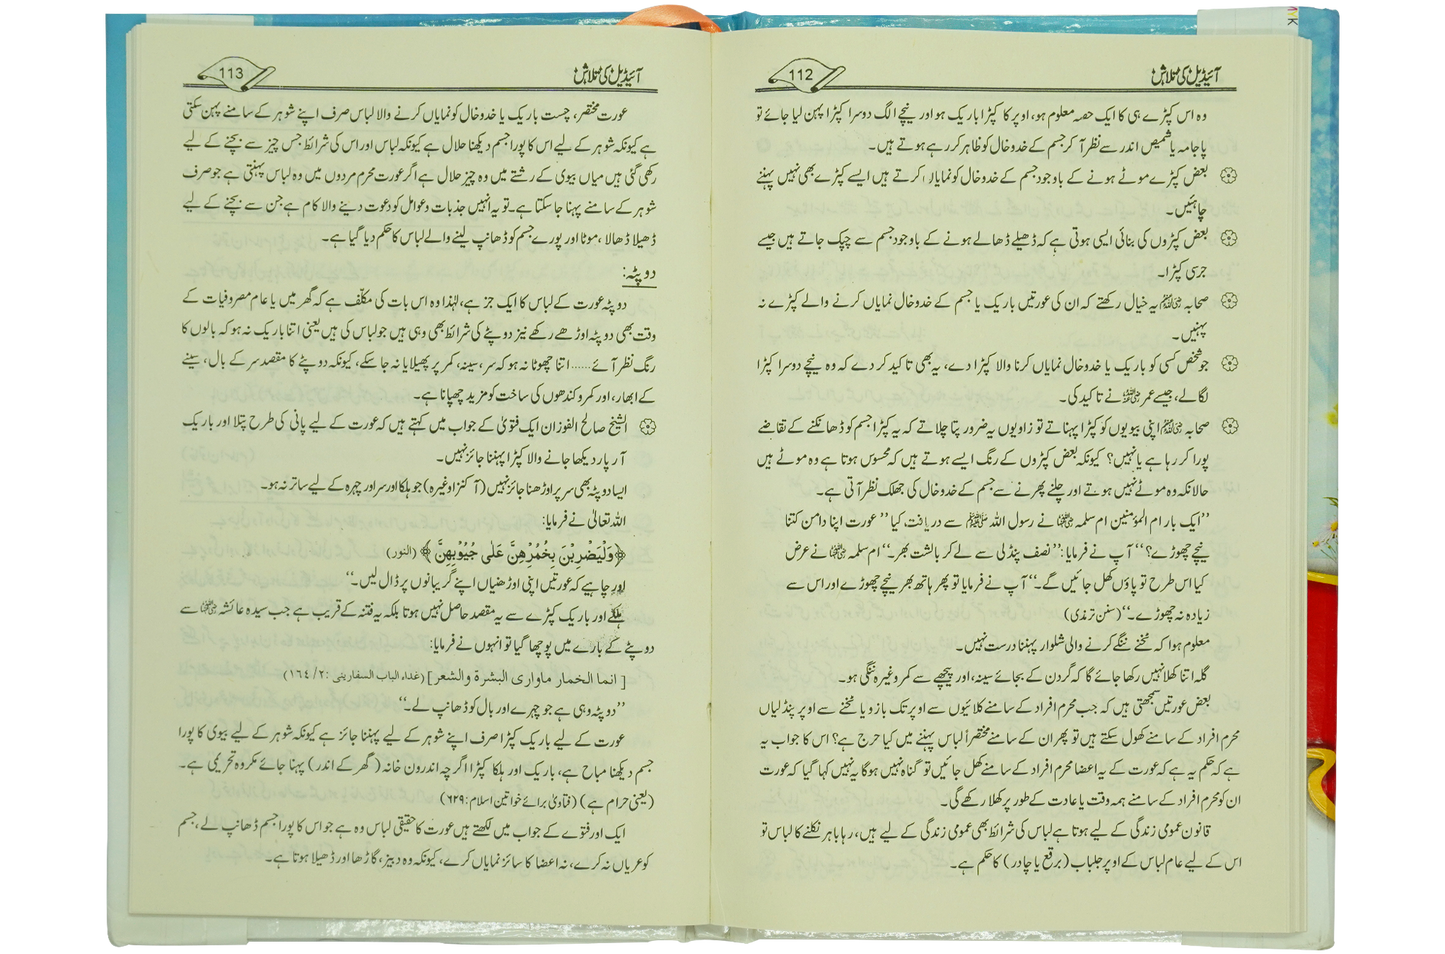 آئیڈیل کی تلاش
112
وہ اس کپڑے ہی کا ایک حصہ معلوم ہو، اوپر کا کپڑا باریک ہو اور نیچے الگ دوسرا کپڑا پہن لیا جائے تو
پاجامہ یا شمیض اندر سے نظر آ کر جسم کے خدوخال کو ظاہر کر رہے ہوتے ہیں۔
بعض کپڑے موٹے ہونے کے باوجود جسم کے خدوخال کو نمایاں کرتے ہیں ایسے کپڑے بھی نہیں پہننے
چاہئیں۔
بعض کپڑوں کی بنائی ایسی ہوتی ہے کہ ڈھیلے ڈھالے ہونے کے باوجود جسم سے چپک جاتے ہیں جیسے
جرسی کپڑا۔
صحابہ ﷢ یہ خیال رکھتے کہ ان کی عورتیں باریک یا جسم کے خدوخال نمایاں کرنے والے کپڑے نہ
پہنیں۔
جو شخص کسی کو باریک یا خدوخال نمایاں کرنا والا کپڑا دے، یہ بھی تاکید کر دے کہ وہ نیچے دوسرا کپڑا
لگا لے، جیسے عمر ﷜ نے تاکید کی۔
صحابہ ﷢ اپنی بیویوں کو کپڑا پہناتے تو زاویوں یہ ضرور پتا چلاتے کہ یہ کپڑا جسم کو ڈھانکنے کے تقاضے
پورا کر رہا ہے یا نہیں؟ کیونکہ بعض کپڑوں کے رنگ ایسے ہوتے ہیں کہ محسوس ہوتا ہے وہ موٹے ہیں
حالانکہ وہ موٹے نہیں ہوتے اور چلنے پھرنے سے جسم کے خدوخال کی جھلک نظر آتی ہے۔
’’ایک بار ام المؤمنین ام سلمہ ﷞ نے رسول اللہ ﷺ سے دریافت کیا ’’عورت اپنا دامن کتنا
نیچے چھوڑے؟‘‘ آپ نے فرمایا: ’’نصف پنڈلی سے لے کر بالشت بھر۔‘‘ ام سلمہ ﷞ نے عرض
کیا اس طرح تو پاؤں کھل جائیں گے۔‘‘ آپ نے فرمایا تو پھر ہاتھ بھر نیچے چھوڑے اور اس سے
زیادہ نہ چھوڑے۔‘‘ (سنن ترمذی)
معلوم ہوا کہ ٹخنے ننگے کرنے والی شلوار پہننا درست نہیں۔
گلہ اتنا کھلا نہیں رکھا جائے گا کہ گردن کے بجائے سینہ، اور پیچھے سے کمر وغیرہ ننگی ہو۔
بعض عورتیں سمجھتی ہیں کہ جب محرم افراد کے سامنے کلائیوں سے اوپر تک بازو یا ٹخنے سے اوپر پنڈلیاں
محرم افراد کے سامنے کھول سکتے ہیں تو پھر ان کے سامنے مختصراً لباس پہننے میں کیا حرج ہے؟ اس کا جواب یہ
ہے کہ حکم یہ ہے کہ عورت کے یہ اعضا محرم افراد کے سامنے کھل جائیں تو گناہ نہیں ہوگا یہ نہیں کہا گیا کہ عورت
ان کو محرم افراد کے سامنے ہمہ وقت یا عادت کے طور پر کھلا رکھے گی۔
قانون عمومی زندگی کے لیے ہوتا ہے لباس کی شرائط بھی عمومی زندگی کے لیے ہیں، رہا باہر نکلنے کا لباس تو
اس کے لیے عام لباس کے اوپر جلباب (برقع یا چادر) کا حکم ہے۔
آئیڈیل کی تلاش
113
عورت مختصر، چست باریک یا خدوخال کو نمایاں کرنے والا لباس صرف اپنے شوہر کے سامنے پہن سکتی
ہے کیونکہ شوہر کے لیے اس کا پورا جسم دیکھنا حلال ہے کیونکہ لباس اور اس کی شرائط جس چیز سے بچنے کے لیے
رکھی گئی ہیں میاں بیوی کے رشتے میں وہ چیز حلال ہے اگر عورت محرم مردوں میں وہ لباس پہنتی ہے جو صرف
شوہر کے سامنے پہنا جا سکتا ہے۔ تو یہ انہیں جذبات و عوامل کو دعوت دینے والا کام ہے جن سے بچنے کے لیے
ڈھیلا ڈھالا، موٹا اور پورے جسم کو ڈھانپ لینے والے لباس کا حکم دیا گیا ہے۔
دوپٹہ:
دوپٹہ عورت کے لباس کا ایک جز ہے، لہٰذا وہ اس بات کی مکلّف ہے کہ گھر میں یا عام مصروفیات کے
وقت بھی دوپٹہ اوڑھے رکھے نیز دوپٹے کی شرائط بھی وہی ہیں جو لباس کی ہیں یعنی اتنا باریک نہ ہو کہ بالوں کا
رنگ نظر آئے ...... اتنا چھوٹا نہ ہو کہ سر، سینہ، کمر پر پھیلایا نہ جا سکے، کیونکہ دوپٹے کا مقصد سر کے بال، سینے
کے ابھار، اور کمر و کندھوں کی ساخت کو مزید چھپانا ہے۔
الشیخ صالح الفوزان ایک فتویٰ کے جواب میں کہتے ہیں کہ عورت کے لیے پانی کی طرح پتلا اور باریک
آر پار دیکھا جانے والا کپڑا پہننا جائز نہیں۔
ایسا دوپٹہ بھی سر پر اوڑھنا جائز نہیں (آ کنز اوغیرہ) جو ہلکا اور سر اور چہرہ کے لیے ساتر نہ ہو۔
اللہ تعالیٰ نے فرمایا:
﴿وَلْيَضْرِبْنَ بِخُمُرِهِنَّ عَلٰى جُيُوْبِهِنَّ﴾ (النور)
اور چاہیے کہ عورتیں اپنی اوڑھنیاں اپنے گریبانوں پر ڈال لیں۔‘‘
ہلکے اور باریک کپڑے سے یہ مقصد حاصل نہیں ہوتا بلکہ یہ فتنہ کے قریب ہے جب سیدہ عائشہ ﷞ سے
دوپٹے کے بارے میں پوچھا گیا تو انہوں نے فرمایا:
[انما الخمار ماواری البشرة والشعر] (غذاء الباب السفارینی :۲/ ۱٦٤)
’’دوپٹہ وہی ہے جو چہرے اور بال کو ڈھانپ لے۔‘‘
عورت کے لیے باریک کپڑا صرف اپنے شوہر کے لیے پہننا جائز ہے کیونکہ شوہر کے لیے بیوی کا پورا
جسم دیکھنا مباح ہے، باریک اور ہلکا کپڑا اگرچہ اندرون خانہ (گھر کے اندر) پہنا جائے مکروہ تحریمی ہے۔
(یعنی حرام ہے) (فتاویٰ برائے خواتین اسلام: ۶۲۹)
ایک اور فتوے کے جواب میں لکھتے ہیں عورت کا حقیقی لباس وہ ہے جو اس کا پورا جسم ڈھانپ لے، جسم
کو عریاں نہ کرے، نہ اعضا کا سائز نمایاں کرے، کیونکہ وہ دبیز، گاڑھا اور ڈھیلا ہوتا ہے۔